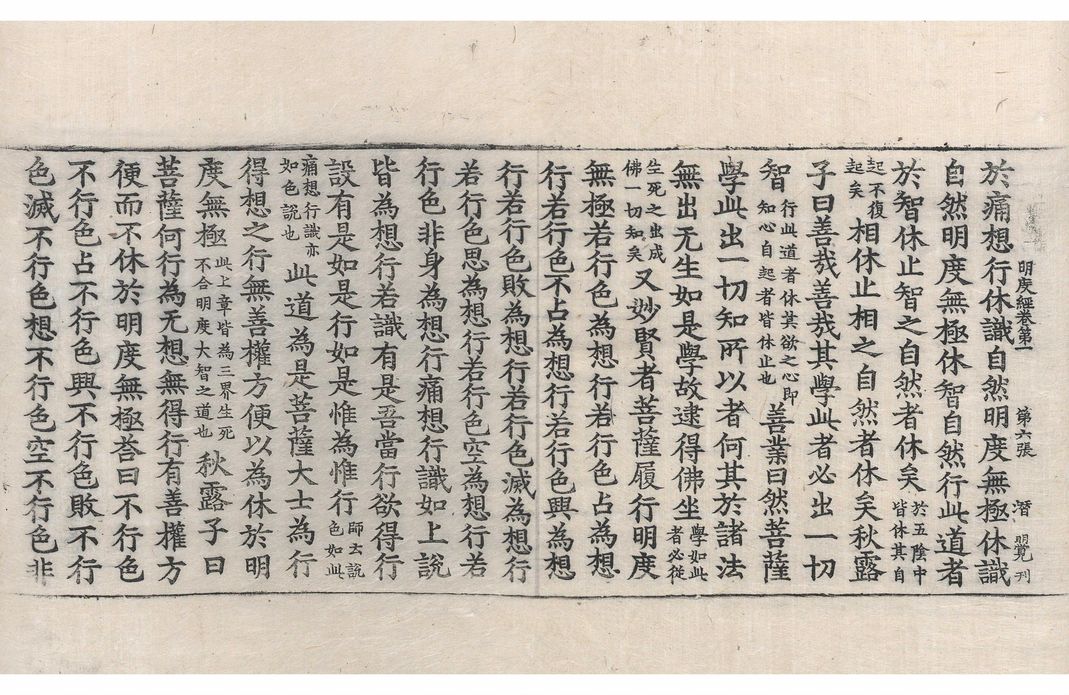 於痛想行休識自然明度無極休識
明度經卷第一 第六張 潛 明覺刊
自然明度無極休智自然行此道者
於智休止智之自然者休矣於五陰中皆休其自
起不復起矣相休止相之自然者休矣秋露
子曰善哉善哉其學此者必出一切
智行此道者休其欲之心即知心自起者皆休止也善業曰然菩薩
學此出一切知所以者何其於諸法
無出无生如是學故逮得佛坐學如此者必從
生死之出成佛一切知矣又妙賢者菩薩履行明度
無極若行色為想行若行色占為想
行若行色不占為想行若行色興為想
行若行色敗為想行若行色滅為想行
若行色思為想行若行色空為想行若
行色非身為想行痛想行識如上說
皆為想行若識有是吾當行欲得行
設有是如是行如是惟為惟行師云說色如此
痛想行識亦如色說也此道為是菩薩大士為行
得想之行無善權方便以為休於明
度無極此上章皆為三界生死不合明度大智之道也秋露子曰
菩薩何行為无想無得行有善權方
便而不休於明度無極荅曰不行色
不行色占不行色興不行色敗不行
色滅不行色想不行色空不行色非